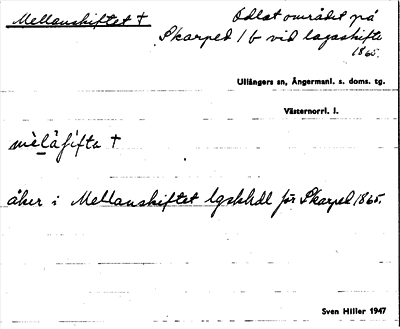 Mellanskiftet † Odlat området på
Skarped 1 b vid lagaskifte
1865.
Ullångers sn, Ångermanl. s. doms. tg.
Västernorrl. l.
†
åker i Mellanskiftet lgskhdl för Skarped 1865.
Sven Hiller 1947